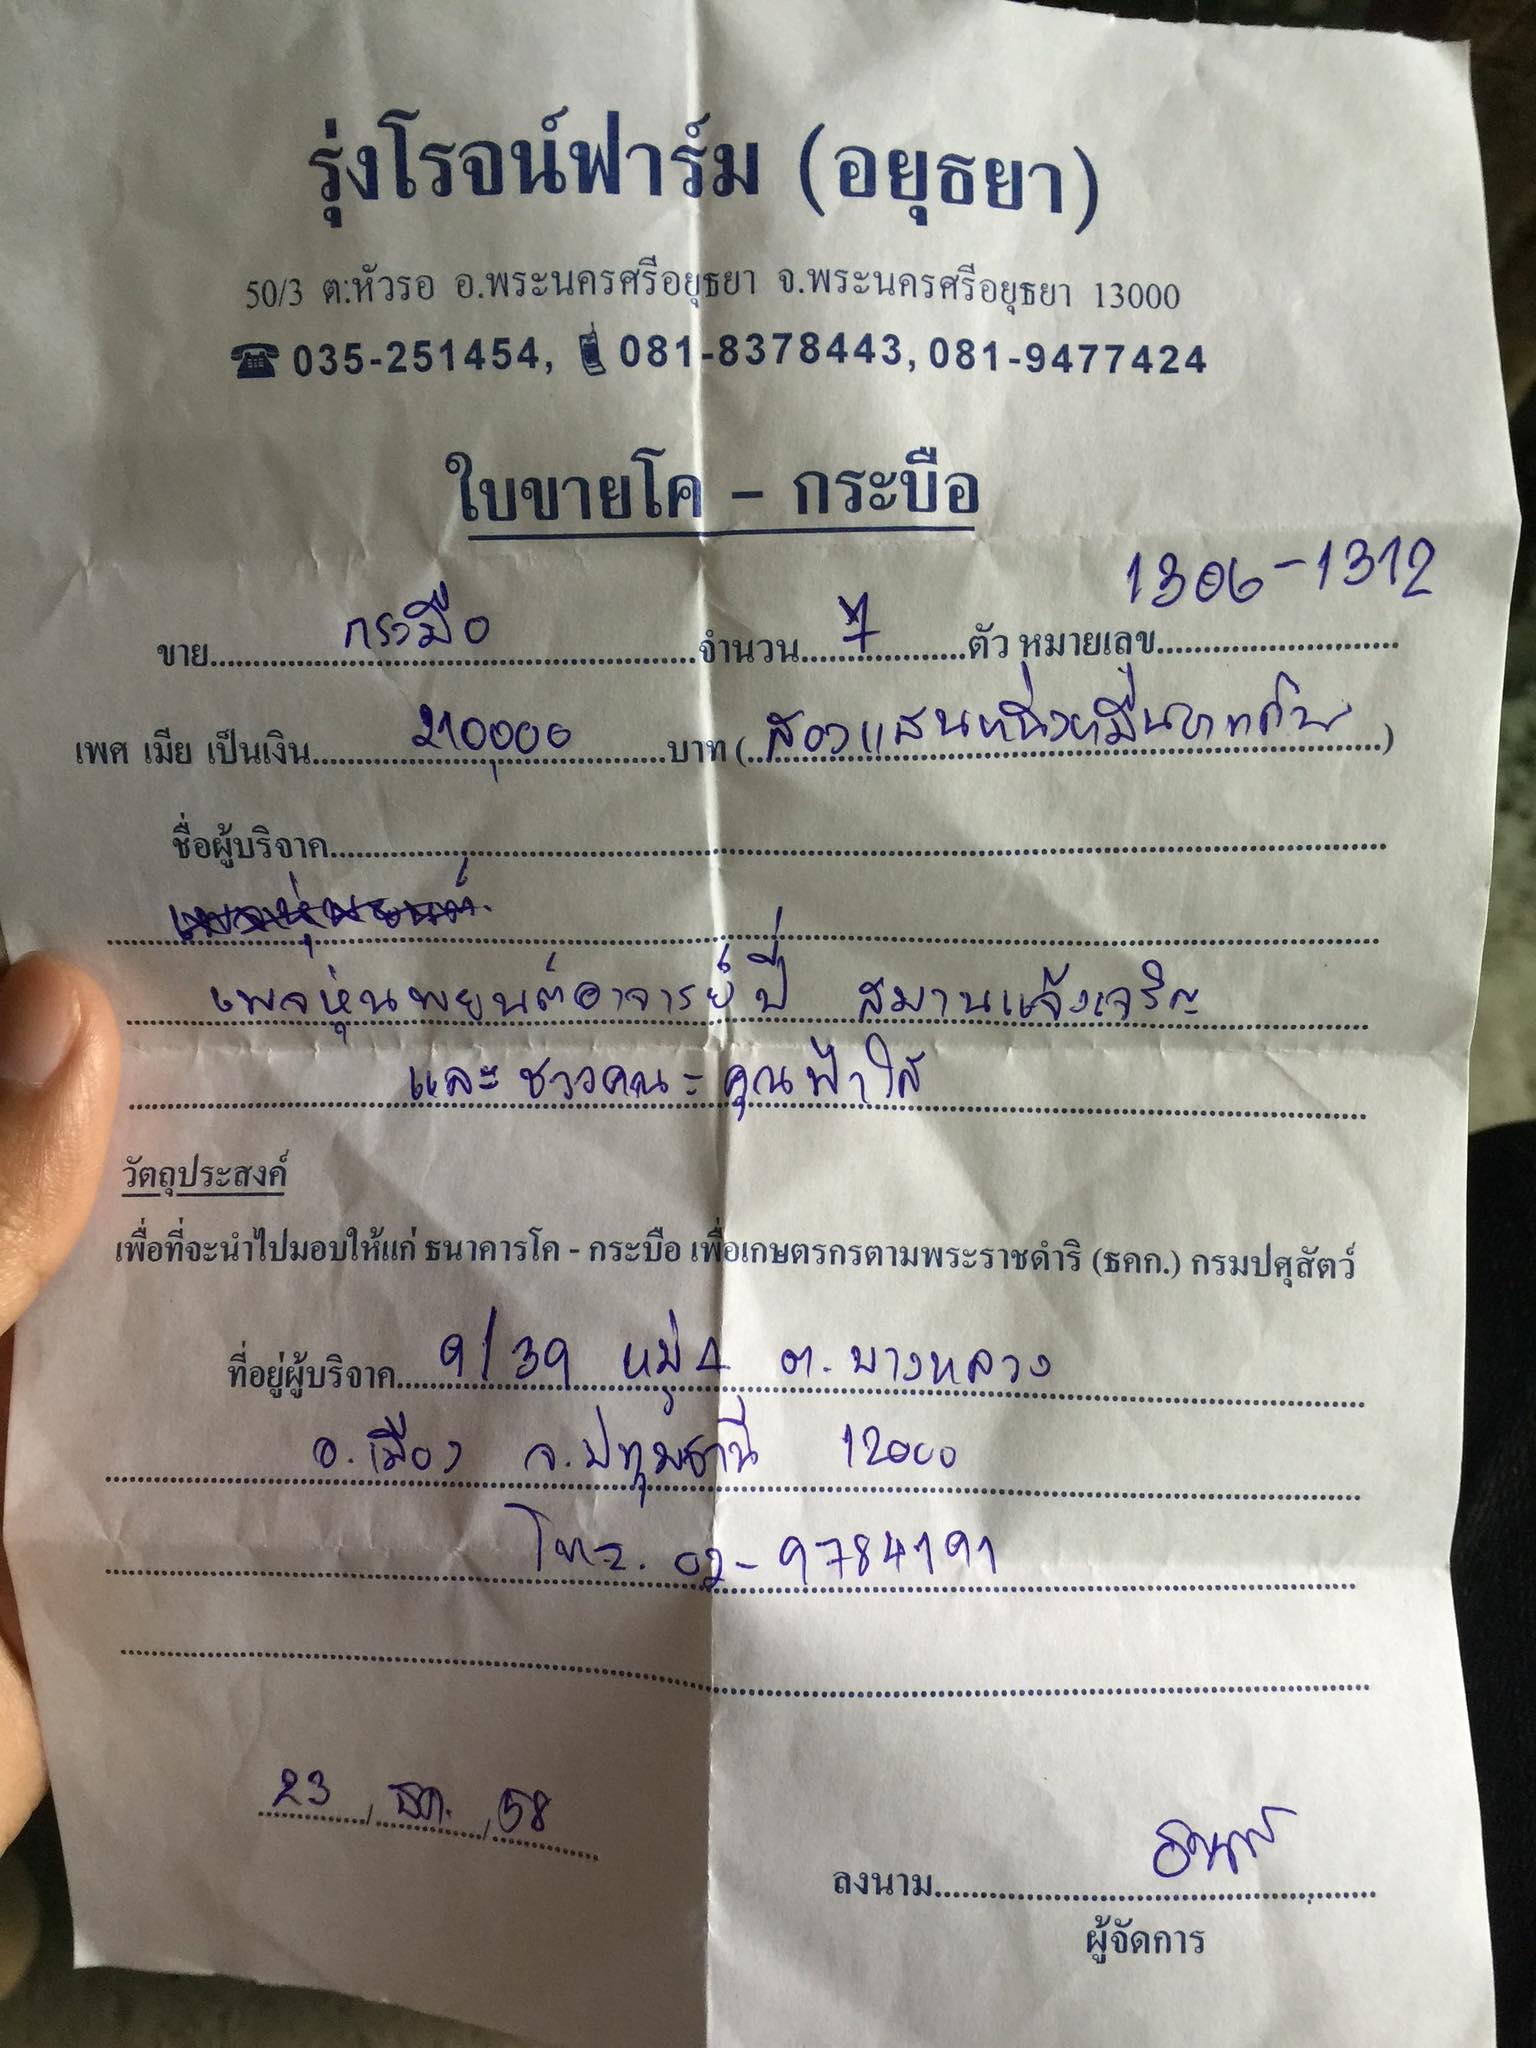 รุ่งโรจน์ฟาร์ม (อยุธยา)
50/3 ต.หัวรอ อ.พระนครศรีอยุธยา จ.พระนครศรีอยุธยา 13000
035-251454, 081-8378443, 081-9477424
ใบขายโค - กระบือ
1306-1312
ขาย กระบือ จำนวน 7 ตัว หมายเลข
เพศ เมีย เป็นเงิน 210000 บาท (สองแสนหนึ่งหมื่นบาทถ้วน)
ชื่อผู้บริจาค
เพจหุ่นพยนต์อาจารย์ปี่ สมานแจ้งเจริญ
และชาวคณะ คุณฟ้าใส
วัตถุประสงค์
เพื่อที่จะนำไปมอบให้แก่ ธนาคารโค - กระบือ เพื่อเกษตรกรตามพระราชดำริ (ธคก.) กรมปศุสัตว์
ที่อยู่ผู้บริจาค 9/39 หมู่ 4 ต.บางหลวง
อ.เมือง จ.ปทุมธานี 12000
โทร. 02-9784191
23 / ธค. / 58
ลงนาม
ผู้จัดการ